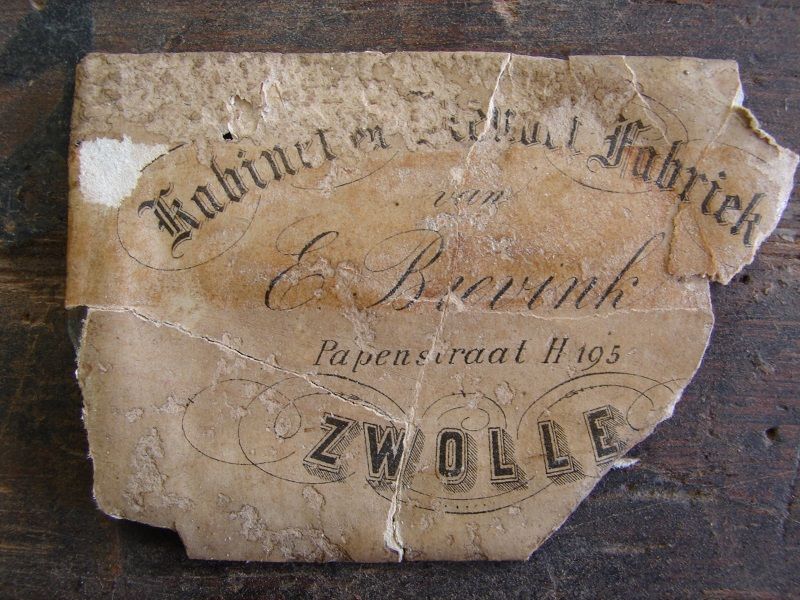 Kabinet en Fabriek
van
E. Brevink
Papenstraat H 195
ZWOLLE